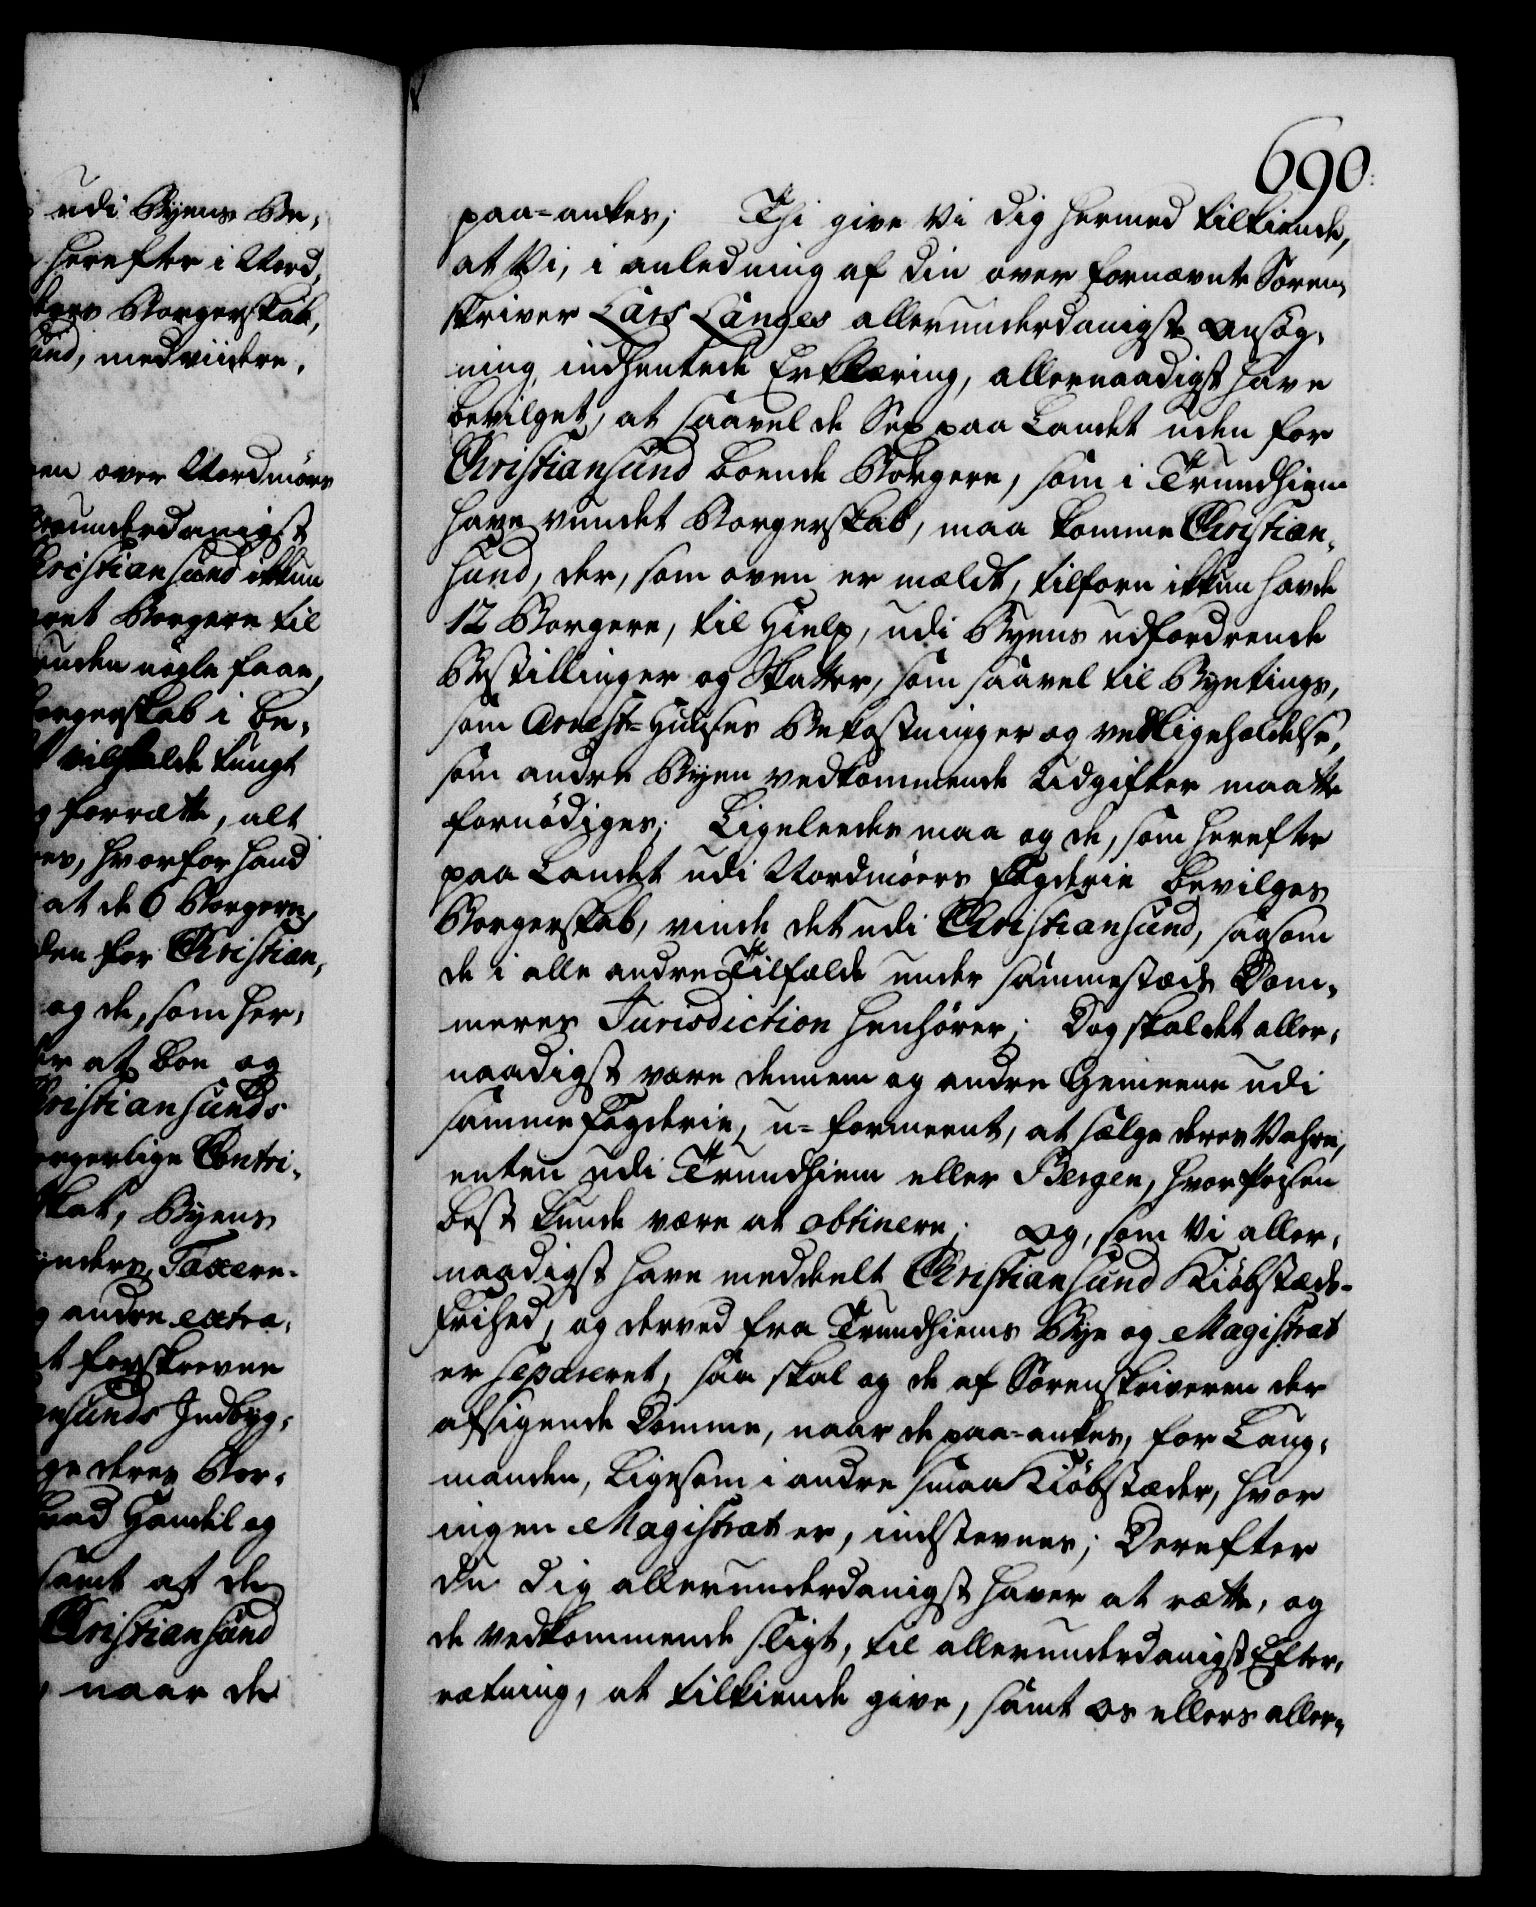 udi Byens Be-
herefter i Nord-
Borgerskab,
med viidere.
over Nordmørs
allerunderdanigst
Christiansund ikkun
Borgere til
nogle faae,
Borgerskab i be-
vilde tungt
forrætte, alt
hvorfor hand
at de 6 Borgere,
uden for Christian-
og de, som her-
at boe og
Christiansunds
borgerlige Contri-
Skat, Byens
Taxere-
andre extra-
forskrevne
Indbyg-
deres Bor-
Handel og
samt at de
Christiansund
naar de
690.
paa-ankes; Thi give Vi dig hermed tilkiende,
at Vi, i anledning af din over fornævnte Soren-
skriver Lars Langes allerunderdanigste Ansøg-
ning indhentede Erklæring, allernaadigst have
bevilget, at saavel de Sex paa Landet uden for
Christiansund boende Borgere, som i Trundhiem
have vundet Borgerskab, maa komme Christian-
sund, der, som oven er mældt, tilforn ikkun havde
12 Borgere, til Hielp, udi Byens udfordrende
Bestillinger og Skatter, som saavel til Byetings,
som Arrest-Huuses Bekostninger og vedligeholdelse,
som andre Byen vedkommende Udgifter maatte
fornødiges; Ligeleedes maa og de, som herefter
paa Landet udi Nordmøers Fogderie bevilges
Borgerskab, vinde det udi Christiansund, saasom
de i alle andre Tilfælde under sammestæds Dom-
meres Jurisdiction henhører; Dog skal det aller-
naadigst være dennem og andre Gemeene udi
samme Fogderie, u-formeent, at sælge deres Vahre,
enten udi Trundhiem eller Bergen, hvor Prisen
best kunde være at obtinere; Og, som Vi aller-
naadigst have meddeelt Christiansund Kiøbstæds-
Frihed, og derved fra Trundhiems Bye og Magistrat
er separeret, saa skal og de af Sorenskriveren der
afsigende Domme, naar de paa-ankes, for Laug-
manden, Ligesom i andre smaa Kiøbstæder, hvor
ingen Magistrat er, indstevnes; Derefter
du dig allerunderdanigst haver at rætte, og
de vedkommende sligt, til allerunderdanigst Efter-
rætning, at tilkiende give, samt os ellers aller-